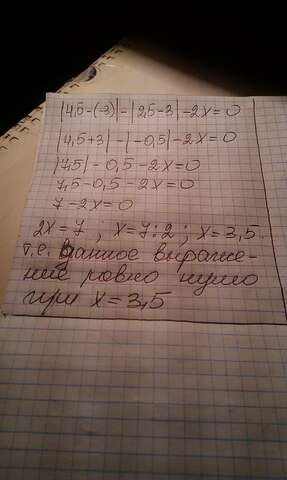 |4,5-(-3)|-|2,5-3|-2x=0
|4,5+3|-|-0,5|-2x=0
|7,5|-0,5-2x=0
7,5-0,5-2x=0
7-2x=0
2x=7; x=7:2; x=3,5
т.е. данное выраже-
ние ровно нулю
при x=3,5